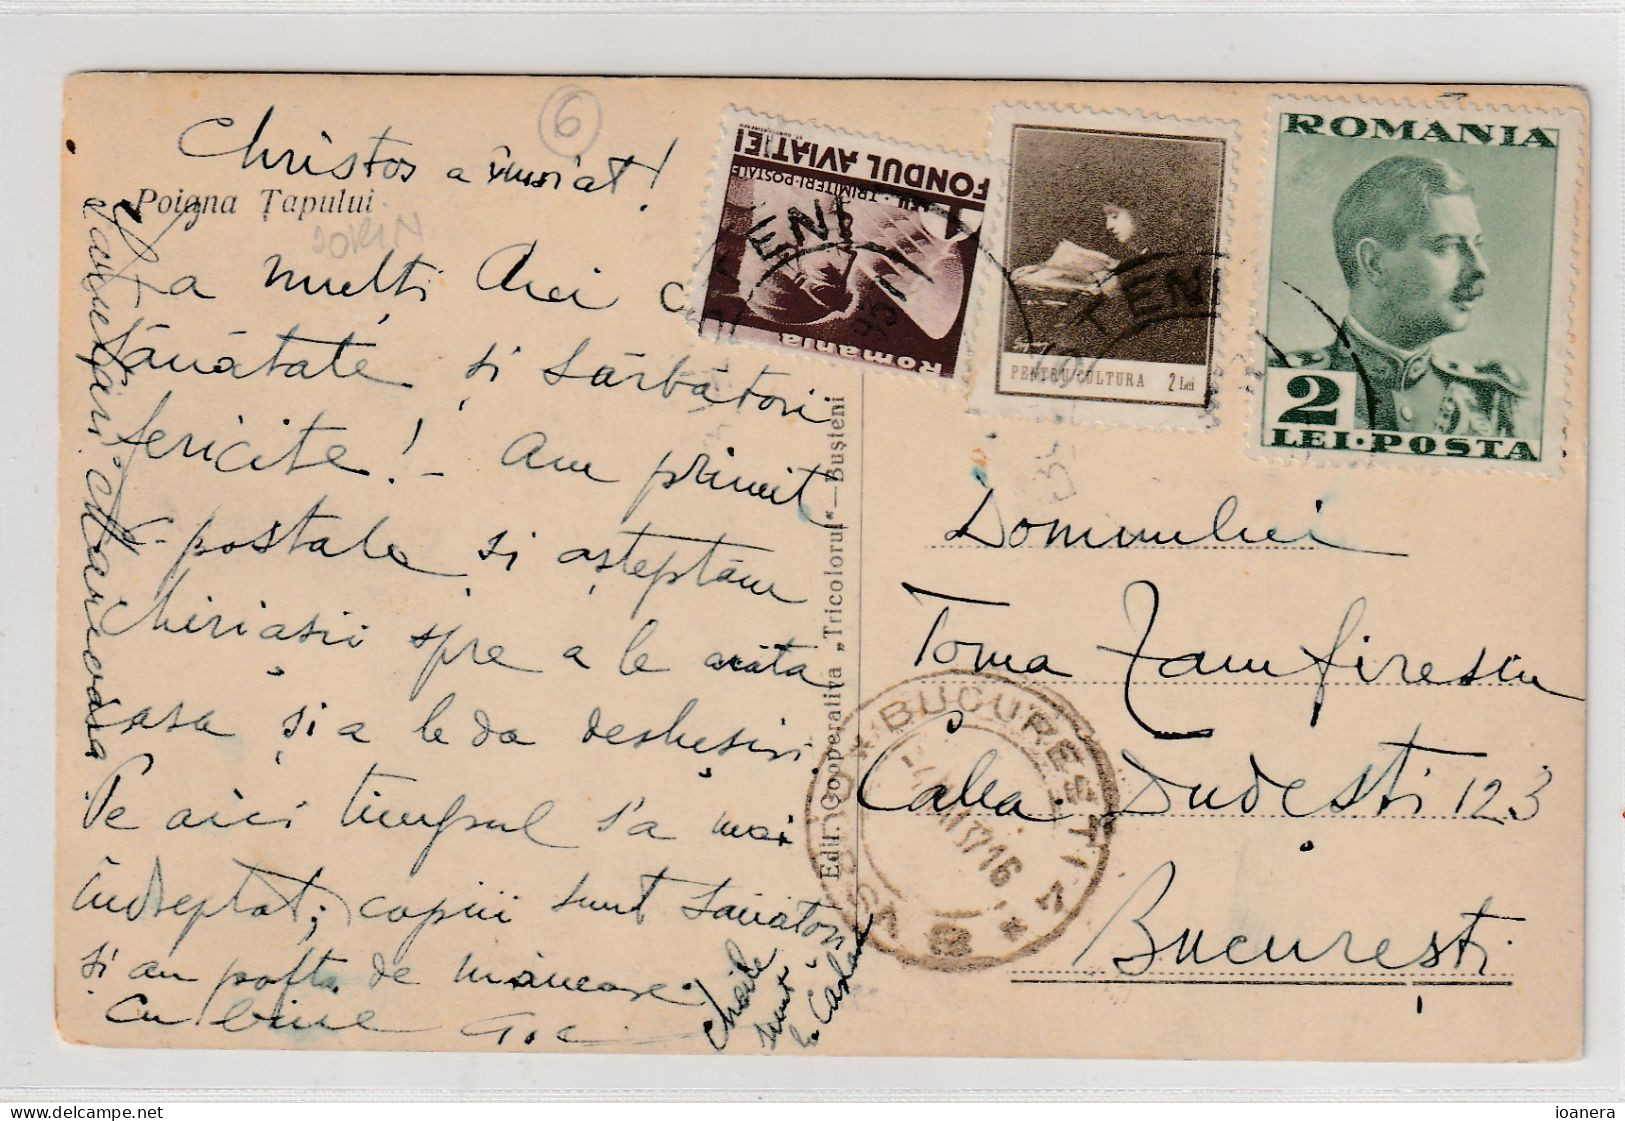 6
Christos a înviat!
Poiana Țapului
SORIN
La mulți Ani cu
Sănătate și Sărbători
fericite! – Am primit
c. postale și așteptăm
Chiriașii spre a le arăta
casa și a le da deslușiri
Pe aici timpul s'a mai
îndreptat; copiii sunt sănătoși
și au pofta de mâncare.
Cu bine
Cheile
sunt
la
Sărutări Măricoara
Edit. Cooperativa „Tricolorul“—Bușteni
1 LEU · TRIMITERI·POSTALE
FONDUL AVIAȚIEI
Romania
PENTRU CULTURA 2 Lei
ROMANIA
2
LEI·POSTA
TENI
BUCUREȘTI
37 16
Domnului
Toma Zamfirescu
Calea Dudești 123
București
www.delcampe.net
ioanera